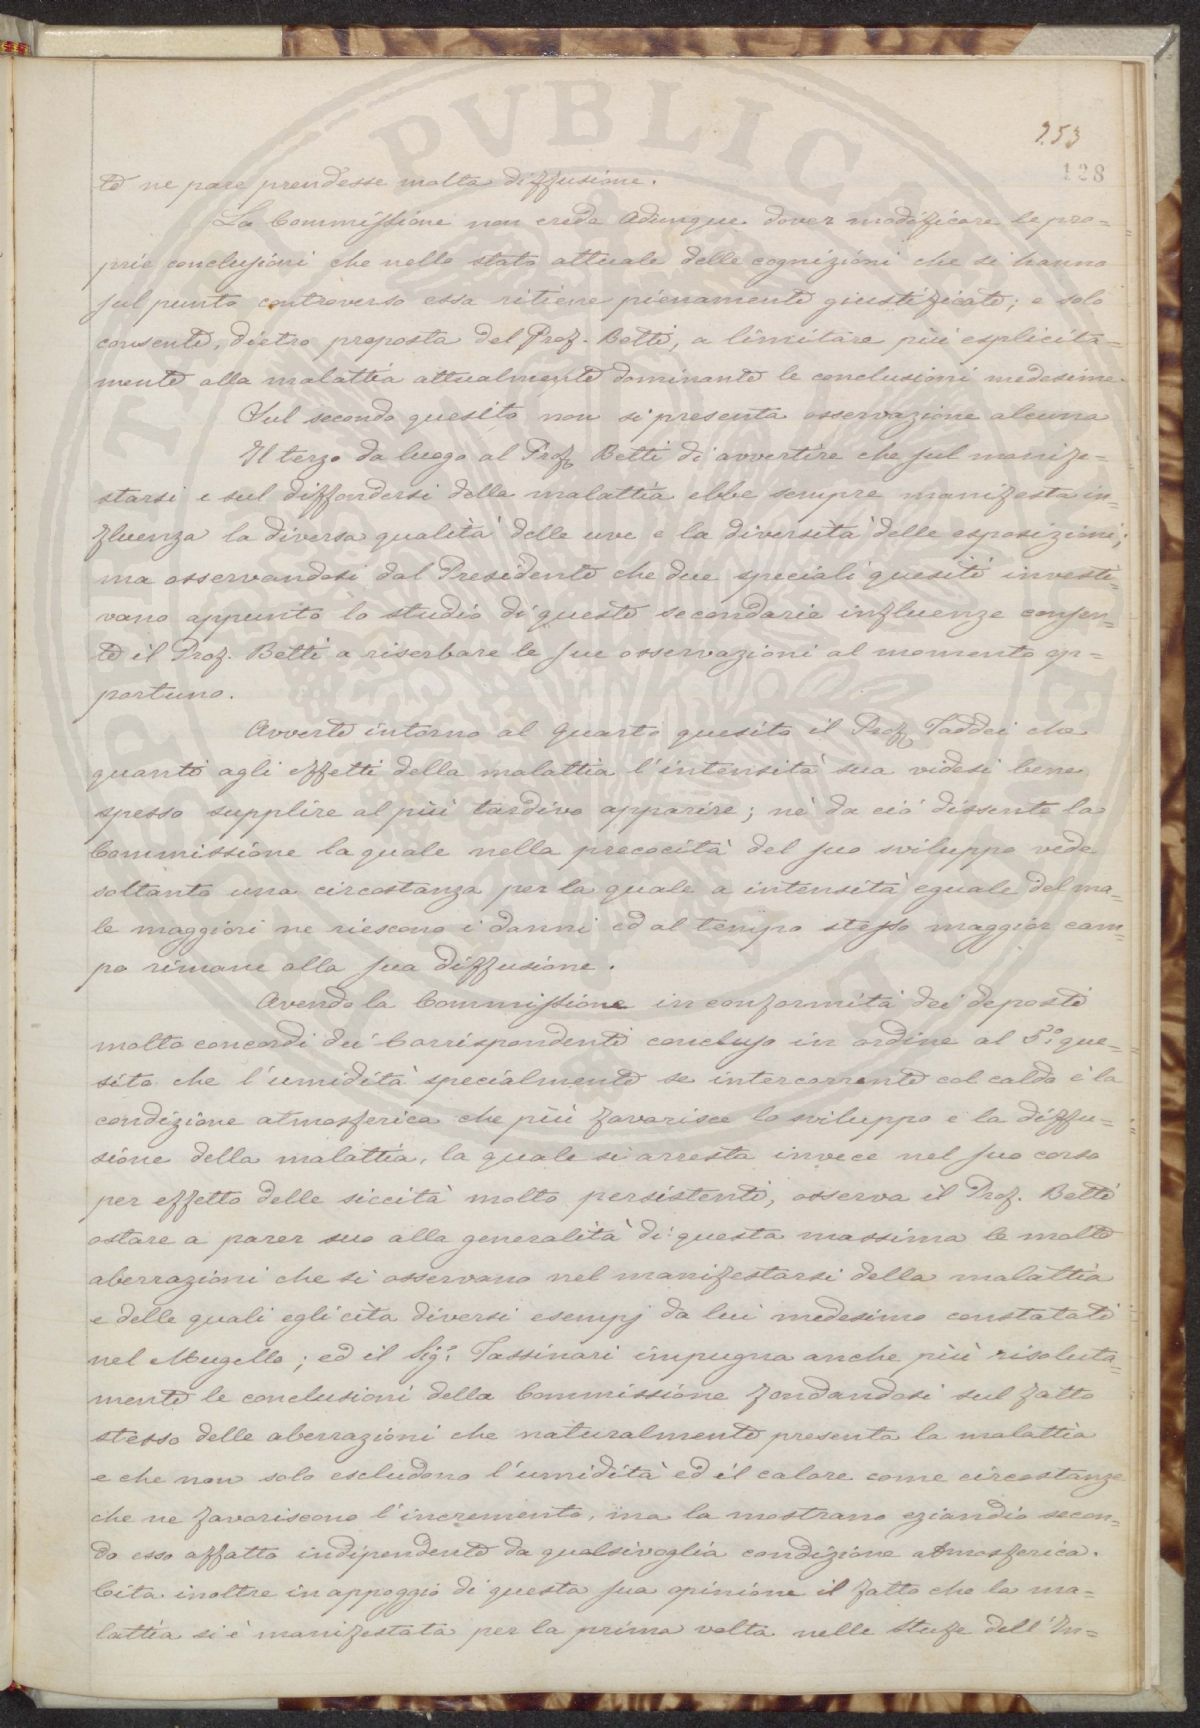 253
128
te ne pare prendesse molta diffusione.
La Commissione non creda adunque dover modificare le pro=
prie conclusioni che nello stato attuale delle cognizioni che si hanno
sul punto controverso essa ritiene pienamente giustificate; e solo
consente, dietro proposta del Prof. Betti, a limitare più esplicita=
mente alla malattia attualmente dominante le conclusioni medesime.
Sul secondo quesito non si presenta osservazione alcuna
Il terzo da luogo al Prof. Betti di avvertire che sul manife=
starsi e sul diffondersi della malattia ebbe sempre manifesta in=
fluenza la diversa qualità delle uve e la diversità delle esposizioni;
ma osservandosi dal Presidente che due speciali quesiti investi=
vano appunto lo studio di queste secondarie influenze consen=
te il Prof. Betti a riserbare le sue osservazioni al momento op=
portuno.
Avverte intorno al quarto quesito il Prof. Taddei che
quanto agli effetti della malattia l'intensità sua videsi bene
spesso supplire al più tardivo apparire; nè da ciò dissente la
Commissione la quale nella precocità del suo sviluppo vede
soltanto una circostanza per la quale a intensità eguale del ma=
le maggiori ne riescono i danni ed al tempo stesso maggior cam=
po rimane alla sua diffusione.
Avendo la Commissione in conformità dei deposti
molto concordi dei Corrispondenti concluso in ordine al 5.º que=
sito che l'umidità specialmente se intercorrente col caldo è la
condizione atmosferica che più favorisce lo sviluppo e la diffu=
sione della malattia, la quale si arresta invece nel suo corso
per effetto delle siccità molto persistenti, osserva il Prof. Betti
ostare a parer suo alla generalità di questa massima le molte
aberrazioni che si osservano nel manifestarsi della malattia
e delle quali egli cita diversi esempj da lui medesimo constatati
nel Mugello; ed il Sig.r Tassinari impugna anche più risoluta=
mente le conclusioni della Commissione fondandosi sul fatto
stesso delle aberrazioni che naturalmente presenta la malattia
e che non solo escludono l'umidità ed il calore come circostanze
che ne favoriscono l'incremento, ma la mostrano eziandio secon=
do esso affatto indipendente da qualsivoglia condizione atmosferica.
Cita inoltre in appoggio di questa sua opinione il fatto che la ma=
lattia si è manifestata per la prima volta nelle Stufe dell'In=